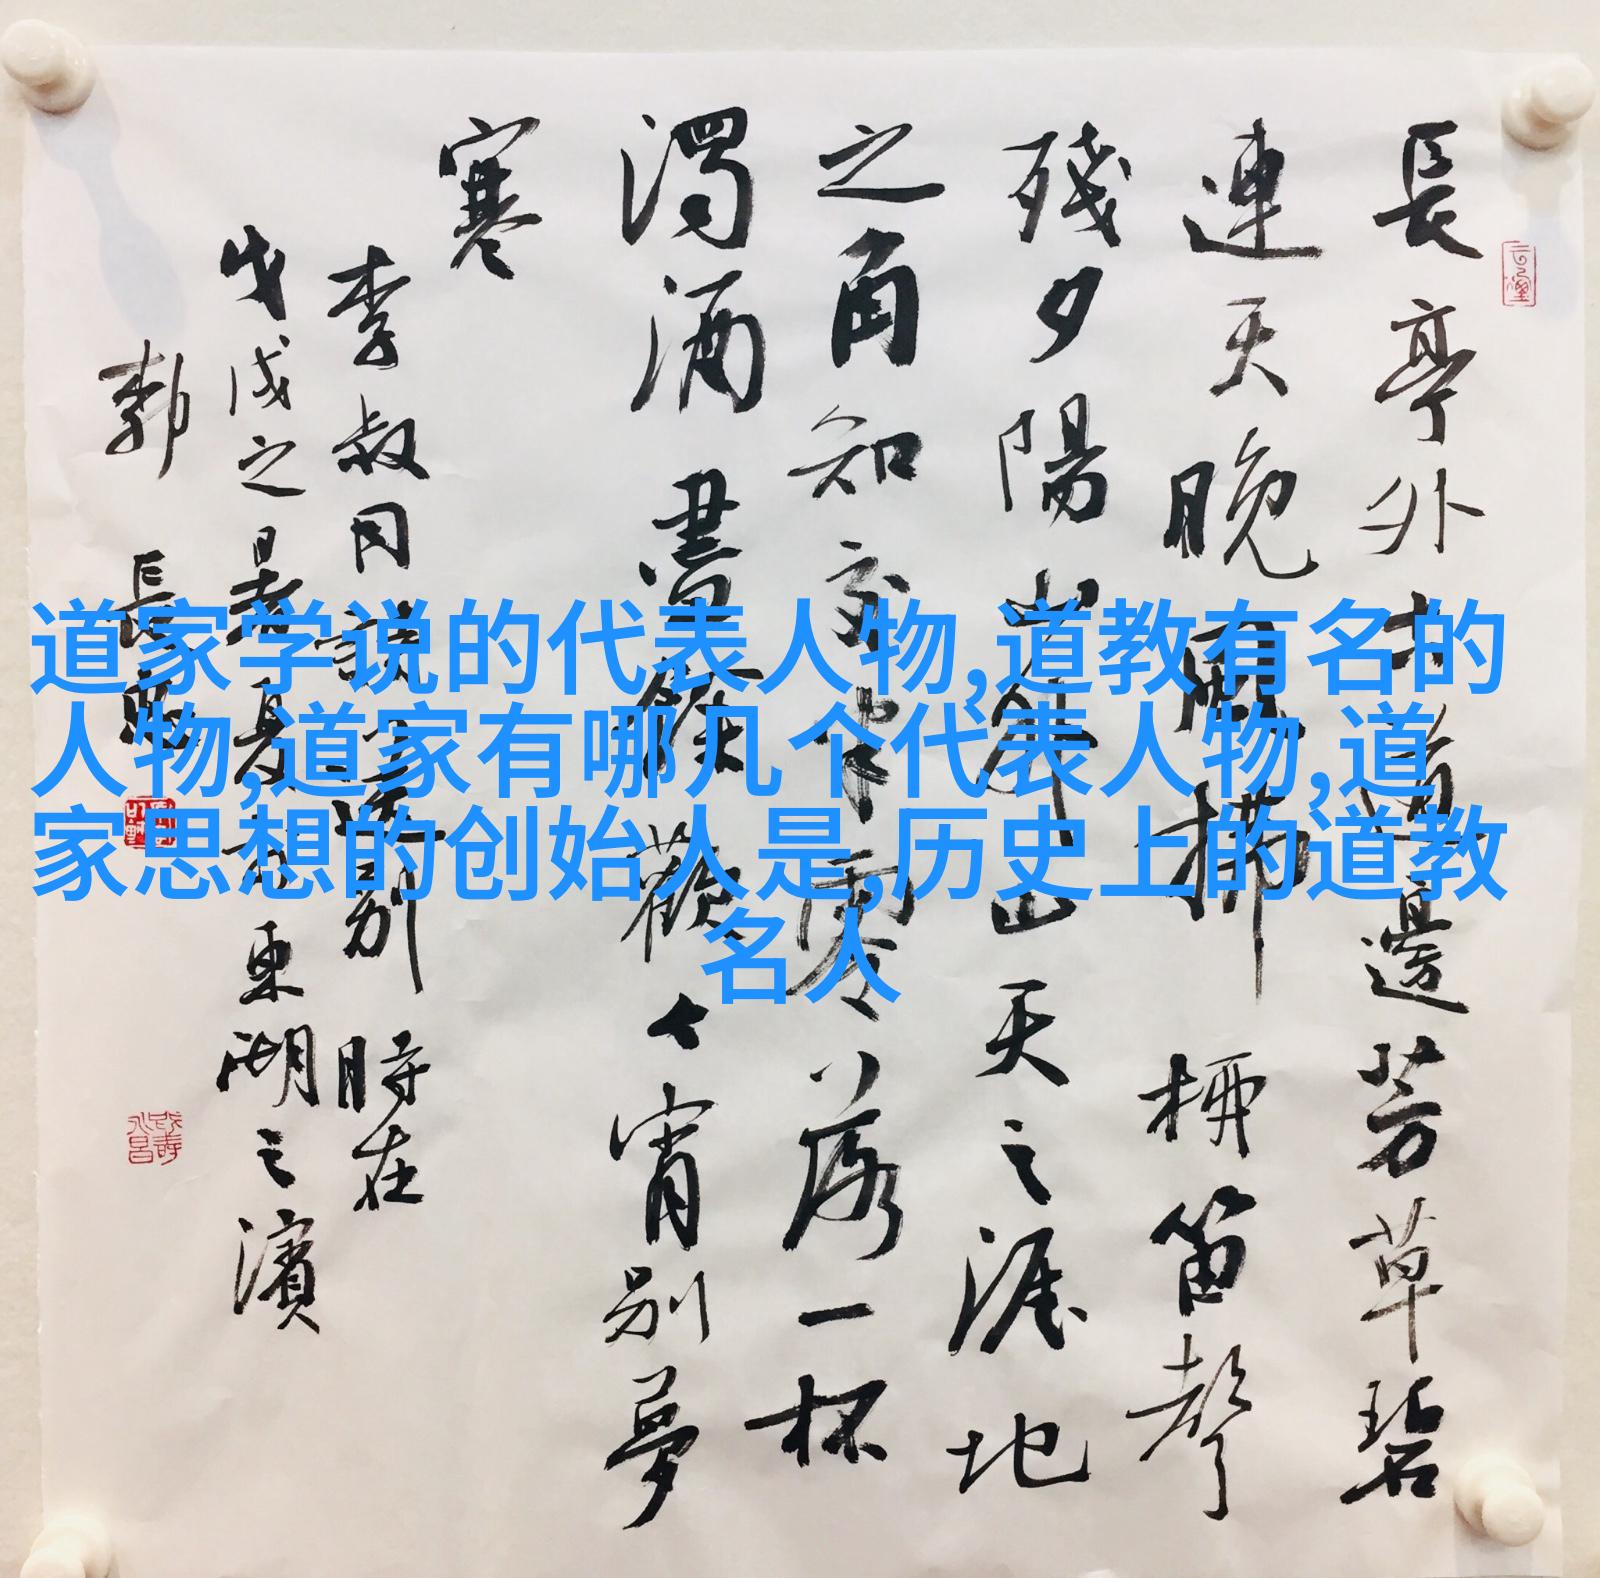 道家学说的代表人物,道教有名的
人物,道家有哪几个代表人物,道
家思想的创始人是,历史上的道教
名人
長亭外古道邊芳草碧
連天晚風拂柳笛聲
殘夕陽山外山天之涯地
之角知交半零落一杯
濁酒盡餘歡今宵別夢
寒
李叔同詩送別 時在
戊戌之暑夏於東湖之濱
郭 長